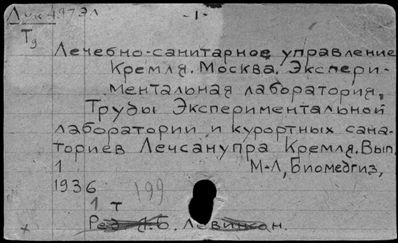 - 1 -
Лечебно-санитарное управление
Кремля. Москва. Экспери-
ментальная лаборатория.
Труды Экспериментальной
лаборатории и курортных сана-
ториев Лечсанупра Кремля. Вып.
1 М-Л, Биомедгиз,
1936
199
1 т
Ред. Я.Б. Левинсон.